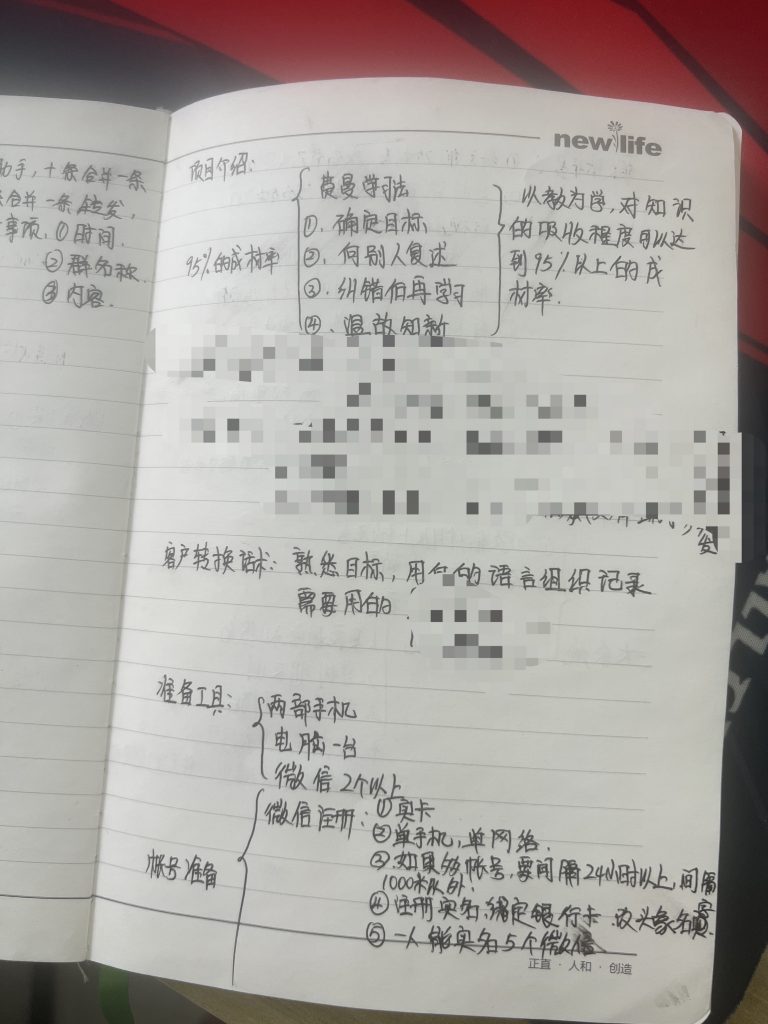 助手,十条合并一条
合并一条能发,
事项,①时间.
②群名称.
③内容.
new life
项目介绍:
95%的成材率
费曼学习法
①.确定目标
②.向别人复述
③.纠错后再学习
④.温故知新
以教为学,对知识
的吸收程度可以达
到95%以上的成
材率.
发
客户转换话术:熟悉目标,用你的语言组织记录
需要用的
准备工具:
两部手机
电脑一台
微信2个以上
帐号准备
微信注册:①实卡
②单手机,单网络.
③如果多帐号,要间隔24小时以上,间隔
1000米以外.
④注册实名,绑定银行卡
⑤一人能实名5个微信
正直·人和·创造